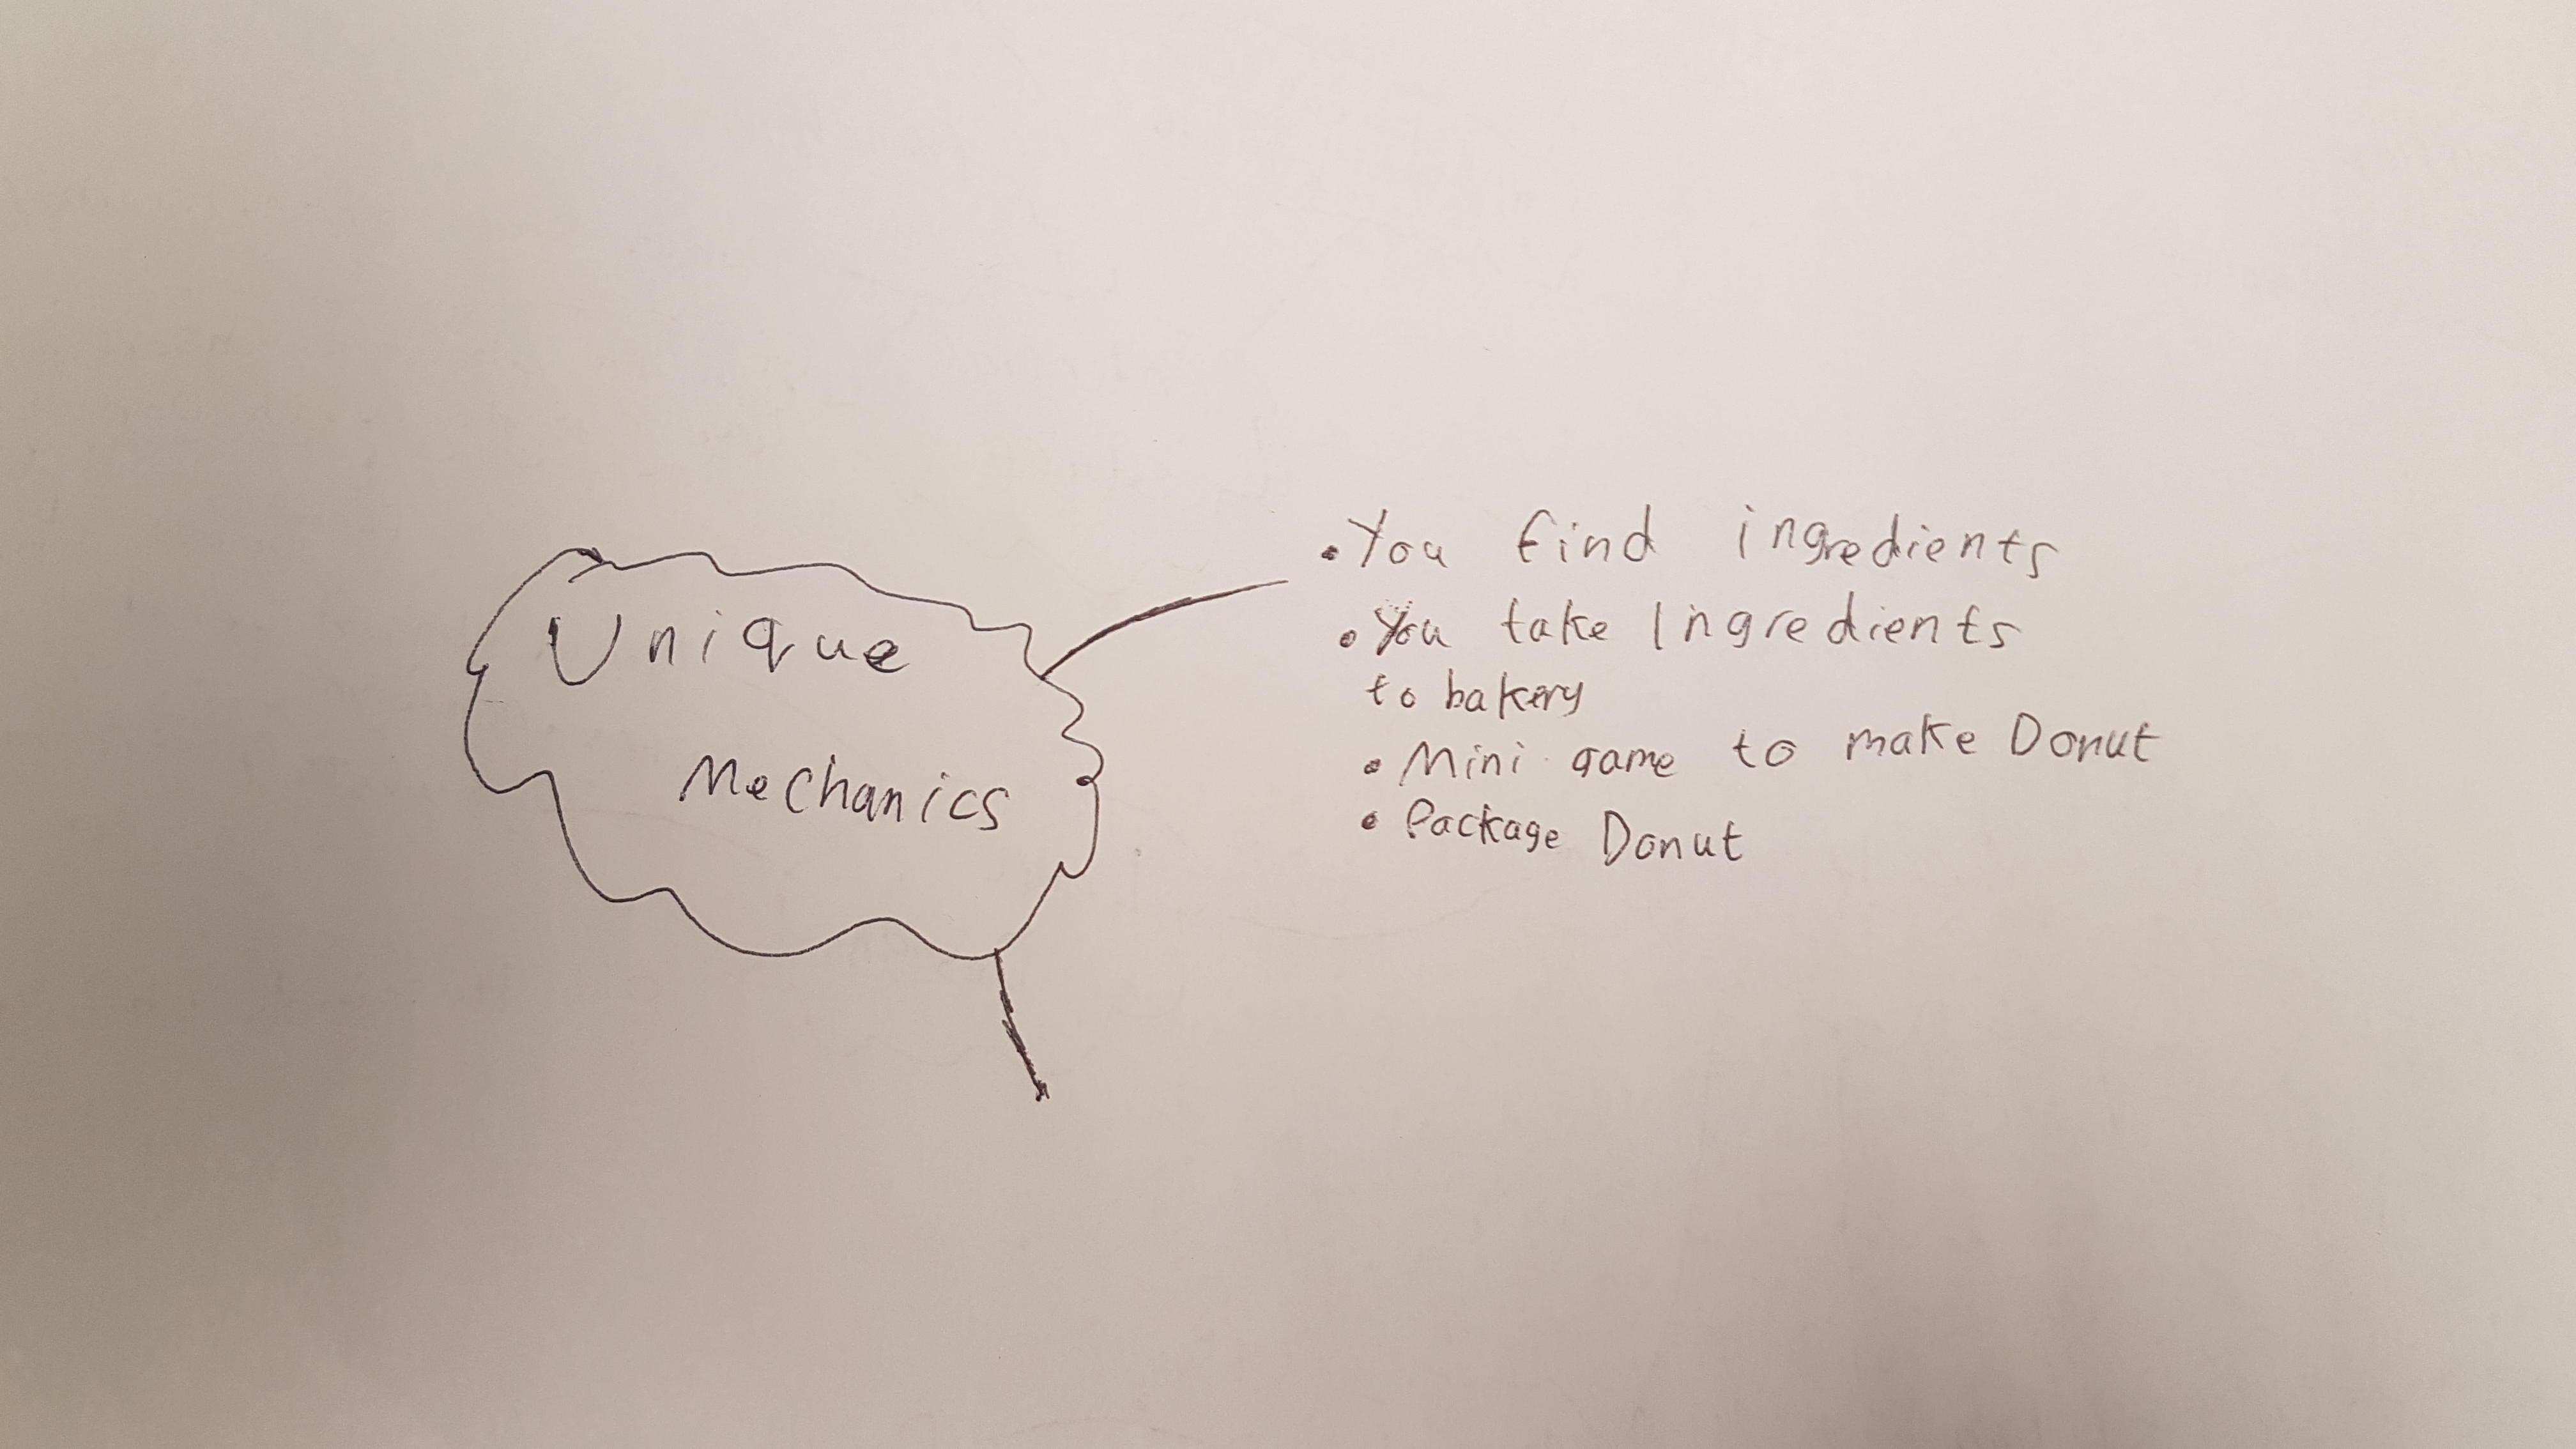 Unique
Mechanics
• You find ingredients
• You take Ingredients
to bakery
• Mini game to make Donut
• Package Donut